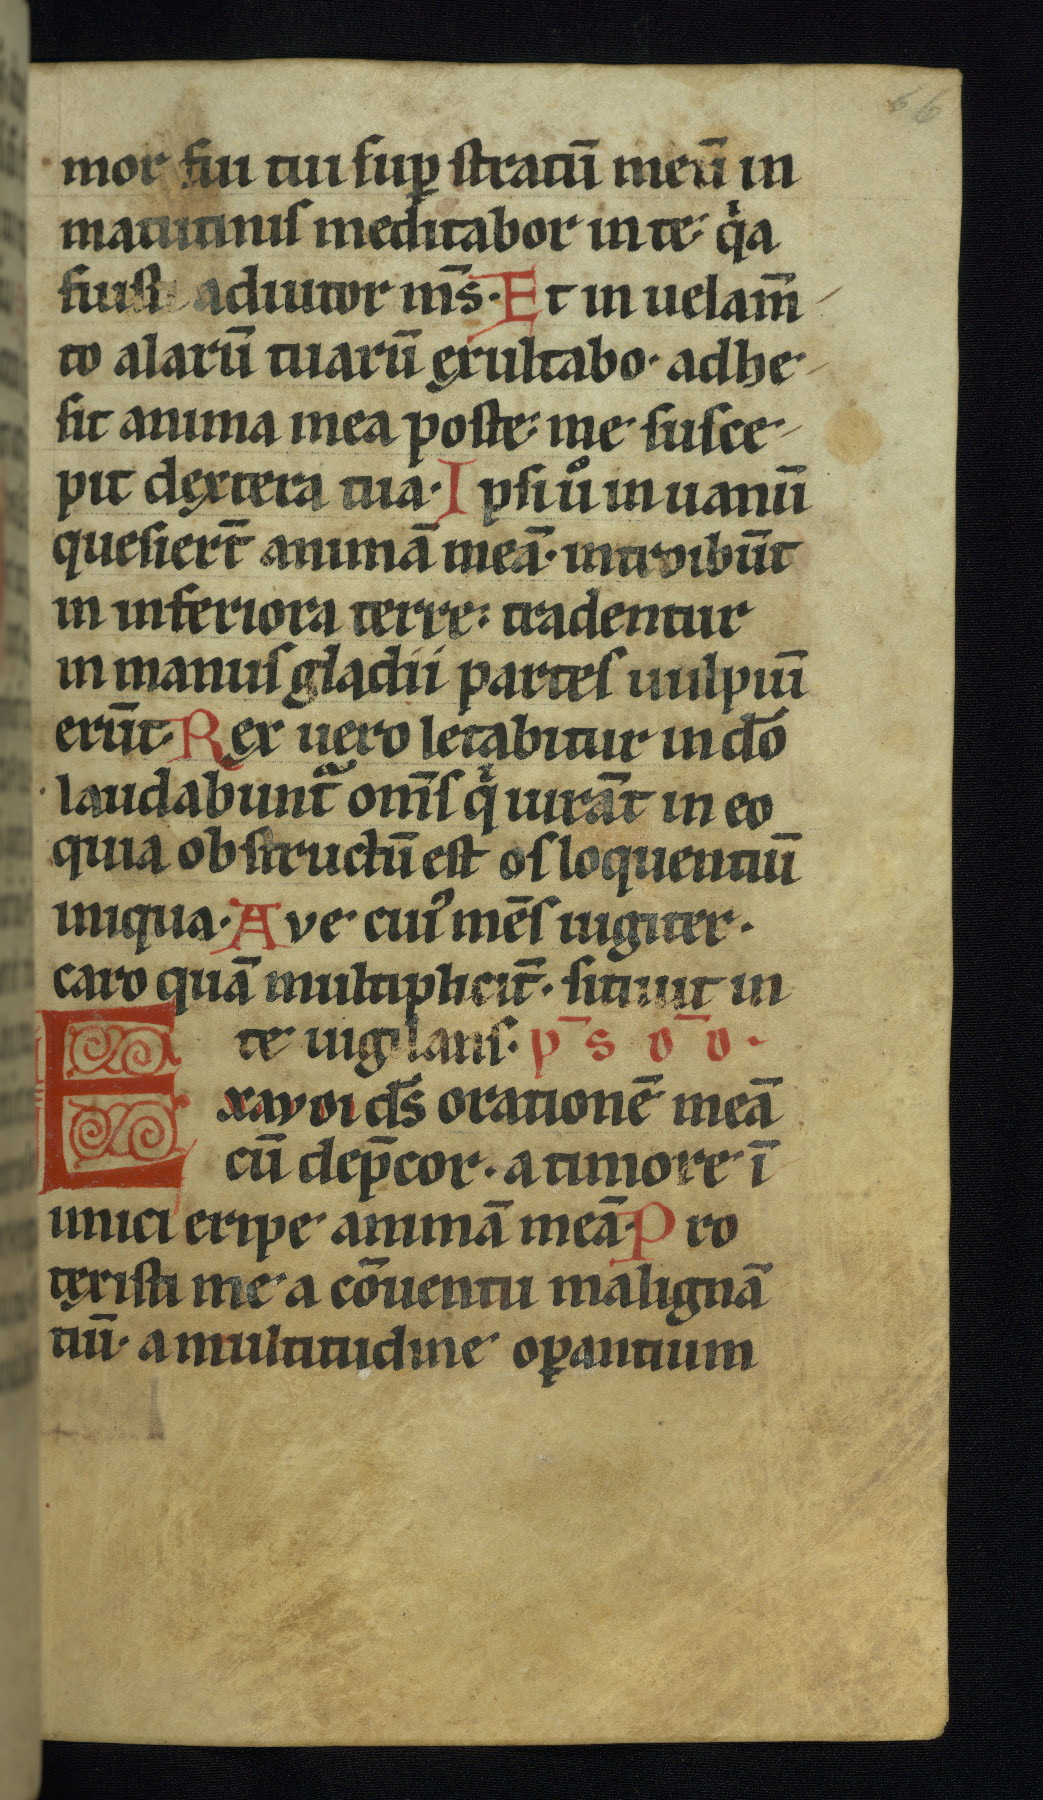 66
mor fui tui sup stratū meū in
matutinis meditabor in te· qia
fuisti adiutor m̄s· Et in uelam̄
to alarū tuarū exultabo· adhe
sit anima mea post te· me susce
pit dextera tua· Ipsi uº in uanū
quesier̄t animā meā· introibūt
in inferiora terre: tradentur
in manus gladii partes uulpiū
erūt· Rex uero letabitur in do̅
laudabunt᷑ om̄s qi iurāt in eo
quia obstructū est os loquentiū
iniqua· Ave cui᷒ mēs iugiter·
caro quā multiplicit̄· sitiuit in
te uigilans· p̄s
Exavdi d̄s orationē meā
cū dep̄cor· a timore ī
imici eripe animā meā· Pro
texisti me a cōuentu malignā
tiū· a multitudine oꝑantium